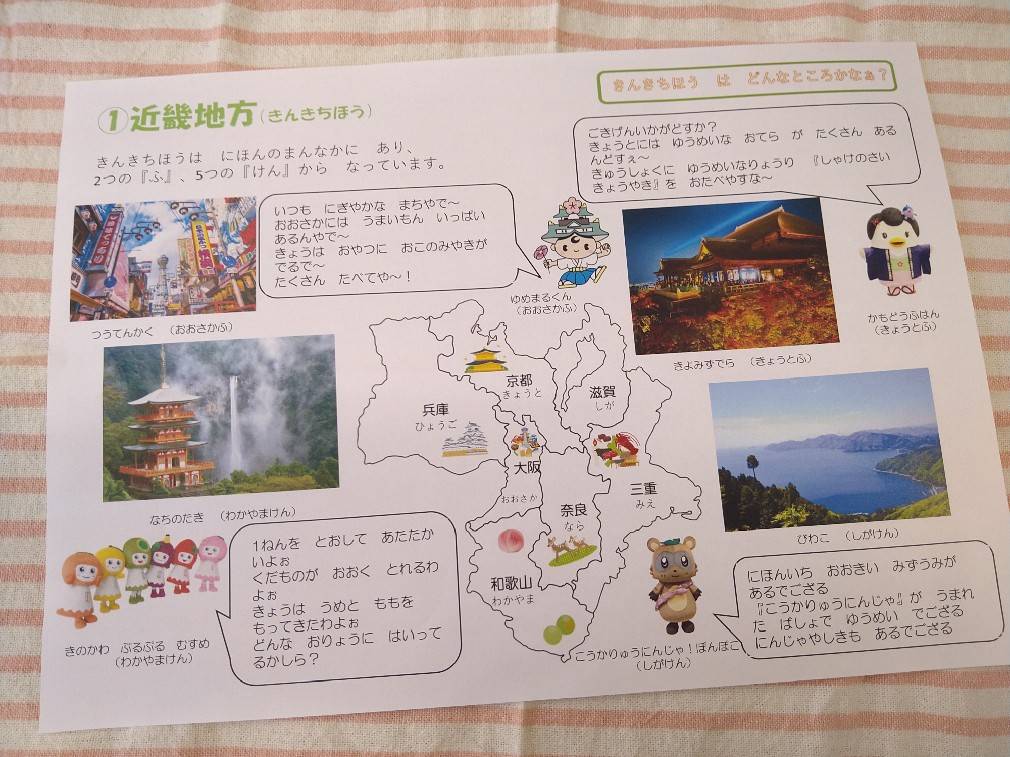 きんきちほう　は　どんなところかなぁ？
①近畿地方(きんきちほう)
きんきちほうは　にほんのまんなかに　あり、
2つの『ふ』、5つの『けん』から　なっています。
いつも　にぎやかな　まちやで～
おおさかには　うまいもん　いっぱい
あるんやで～
きょうは　おやつに　おこのみやきが
でるで～
たくさん　たべてや～！
ゆめまるくん
（おおさかふ）
ごきげんいかがどすか？
きょうとには　ゆうめいな　おてら　が　たくさん　ある
んどすぇ～
きゅうしょくに　ゆうめいなりょうり　『しゃけのさい
きょうやき』を　おたべやすな～
かもどうふはん
（きょうとふ）
つうてんかく　（おおさかふ）
きよみずでら　（きょうとふ）
なちのたき　（わかやまけん）
びわこ　（しがけん）
兵庫
ひょうご
京都
きょうと
滋賀
しが
大阪
おおさか
奈良
なら
三重
みえ
和歌山
わかやま
1ねんを　とおして　あたたか
いよぉ
くだものが　おおく　とれるわ
よぉ
きょうは　うめと　ももを
もってきたわよぉ
どんな　おりょうに　はいって
るかしら？
きのかわ　ぷるぷる　むすめ
（わかやまけん）
にほんいち　おおきい　みずうみが
あるでござる
『こうかりゅうにんじゃ』が　うまれ
た　ばしょで　ゆうめい　でござる
にんじゃやしきも　あるでござる
こうかりゅうにんじゃ！ぽんぽこ
（しがけん）